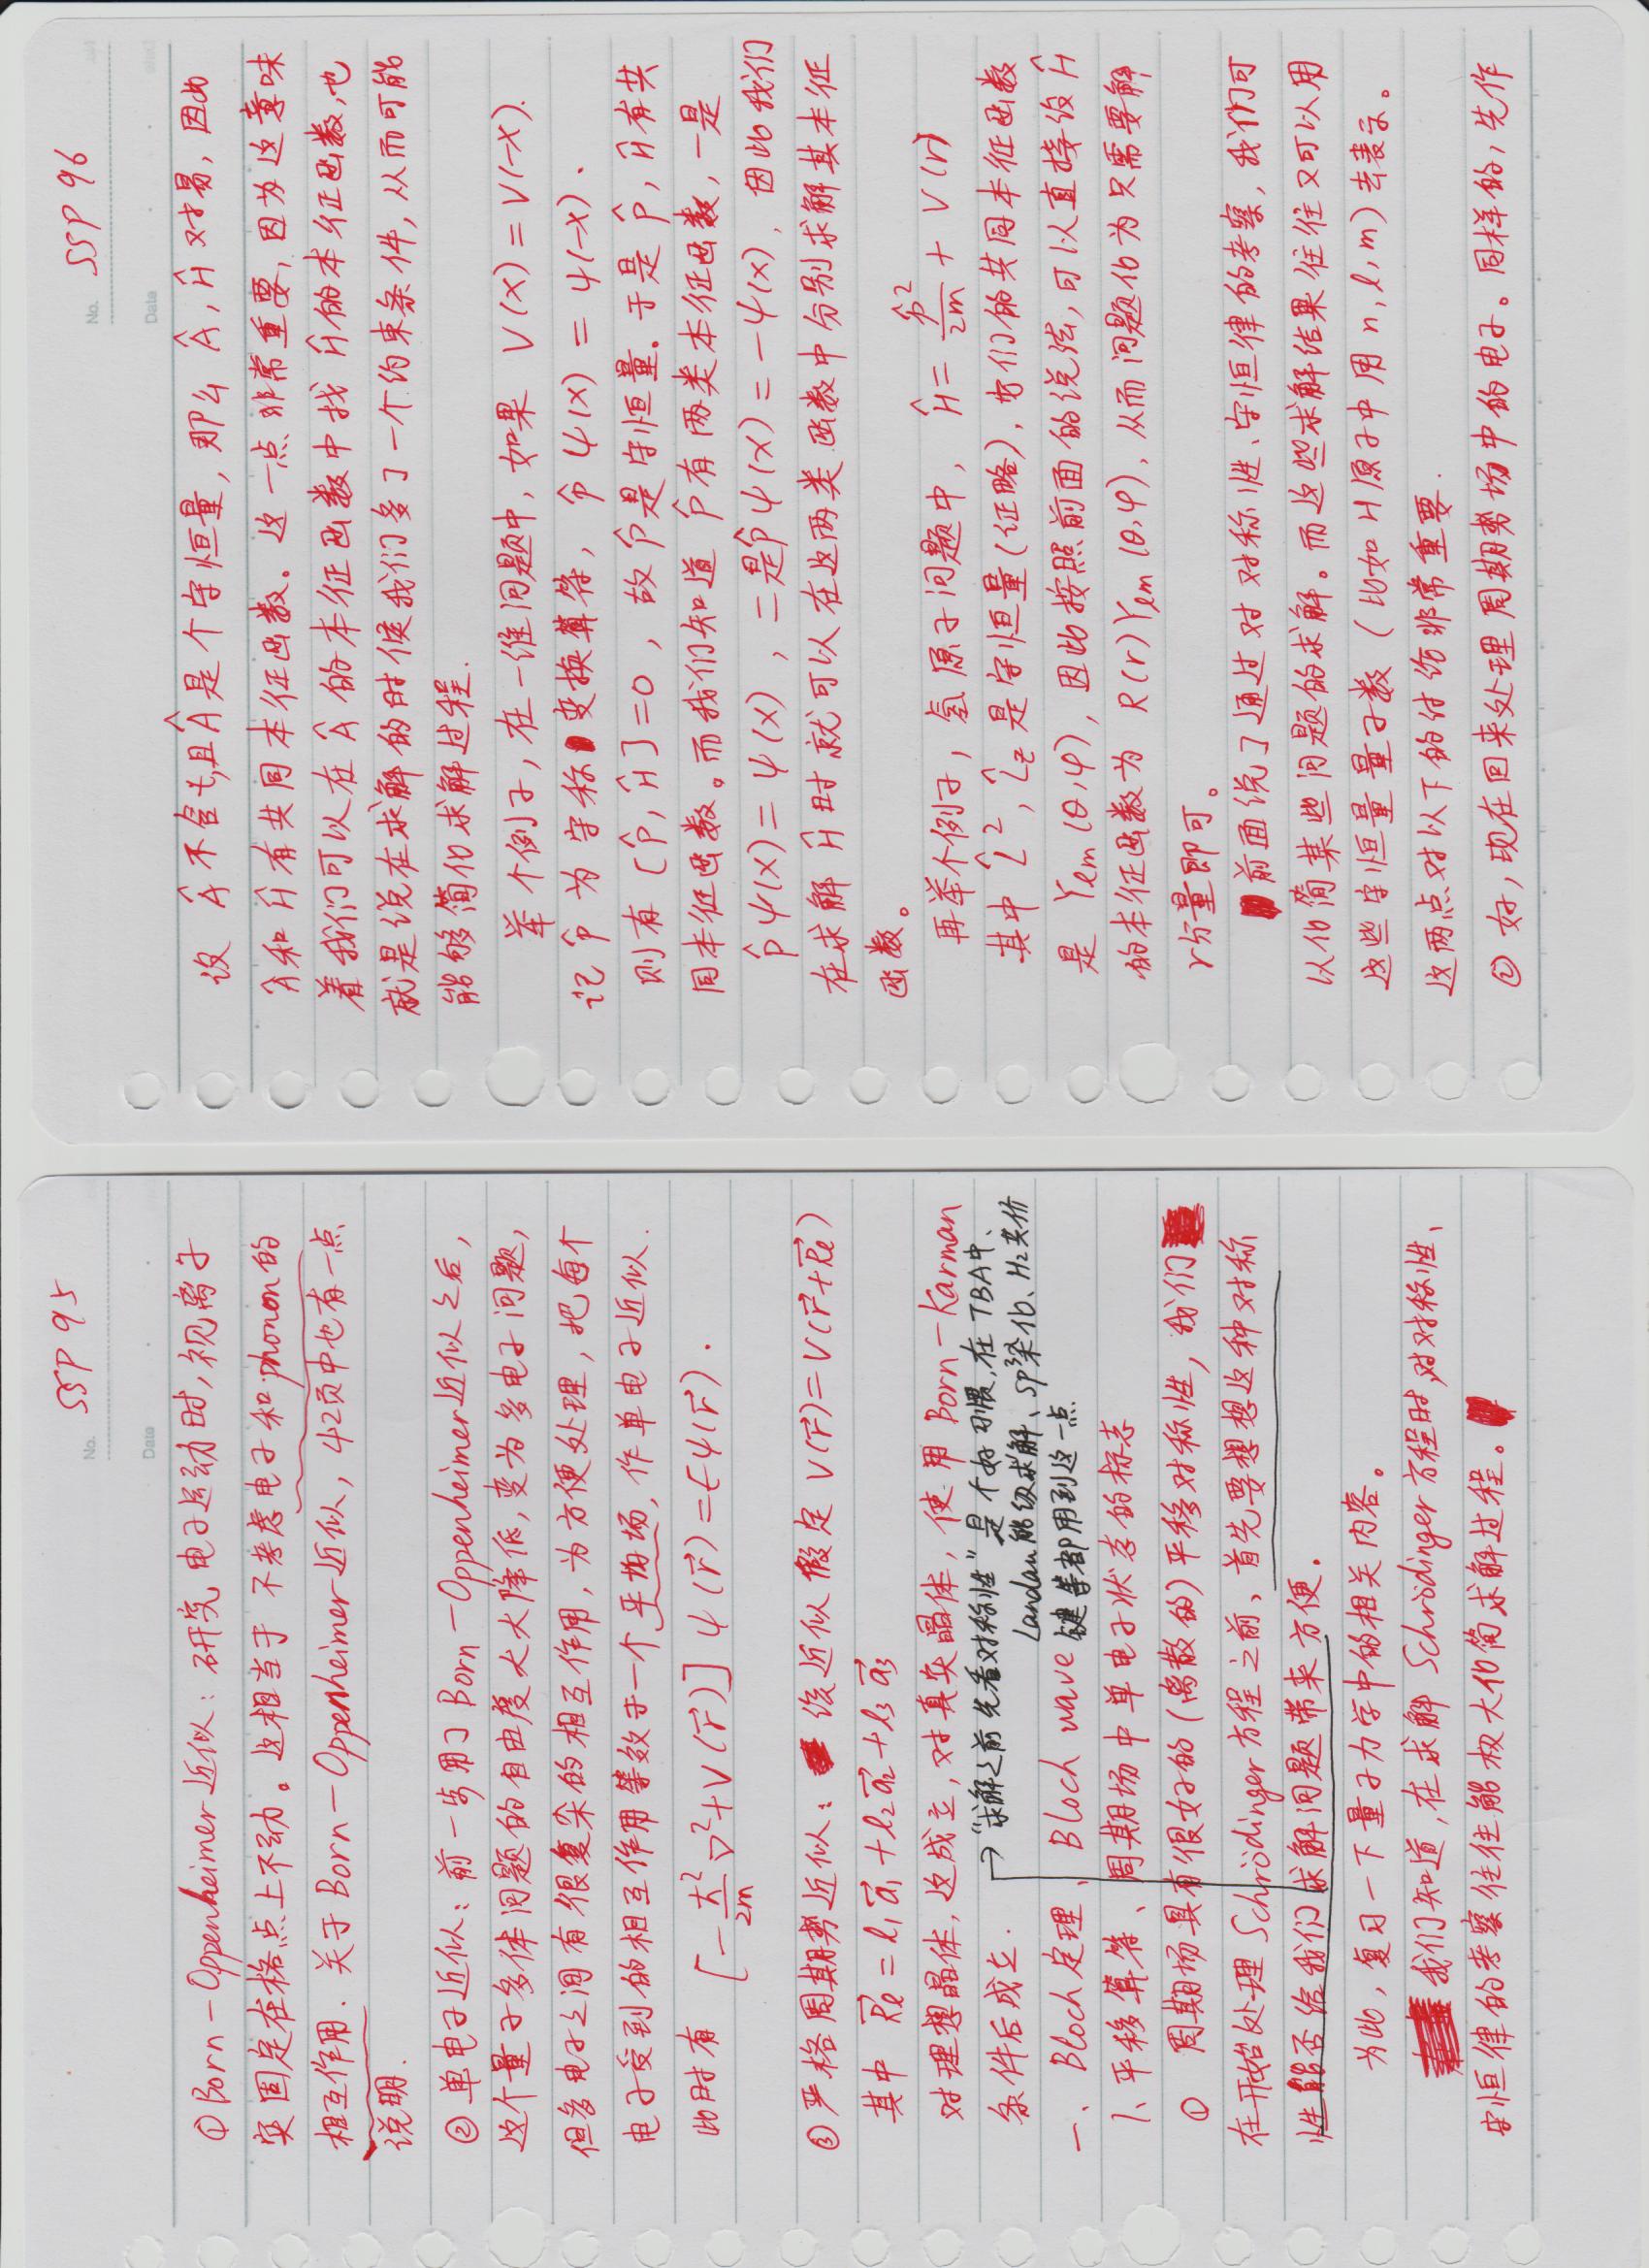 No. SSP 95
Date
① Born-Oppenheimer近似：研究电子运动时，视离子
实固定在格点上不动。这相当于不考虑电子和phonon的
相互作用．关于Born-Oppenheimer近似，42页中也有一点
说明．
② 单电子近似：前一步用了Born-Oppenheimer近似之后，
这个量子多体问题的自由度大大降低，变为多电子问题，
但多电子之间有很复杂的相互作用，为方便处理，把每个
电子受到的相互作用等效于一个平均场，作单电子近似．
此时有 [-ħ²/2m ∇²+V(r⃗)] ψ(r⃗)=Eψ(r⃗)．
③ 严格周期势近似：该近似假定 V(r⃗)=V(r⃗+R⃗ℓ)
其中 R⃗ℓ = ℓ₁a⃗₁+ℓ₂a⃗₂+ℓ₃a⃗₃
对理想晶体，这成立，对真实晶体，使用Born-Karman
条件后成立．
→“求解之前先看对称性”是个好习惯，在TBA中、
Landau能级求解、sp³杂化、H₂共价
键等都用到这一点
一、Bloch定理、Bloch wave
1、平移算符、周期场中单电子状态的标志
① 周期场具有很好的(离散的)平移对称性，我们
在开始处理Schrödinger方程之前，首先要想想这种对称
性能否给我们求解问题带来方便．
为此，复习一下量子力学中的相关内容。
我们知道，在求解Schrödinger方程时，对对称性、
守恒律的考察往往能极大化简求解过程。
No. SSP 96
Date
设 Â不含t,且Â是个守恒量，那么 Â, Ĥ对易，因此
Â和Ĥ有共同本征函数。这一点非常重要，因为这意味
着我们可以在Â的本征函数中找Ĥ的本征函数，也
就是说在求解的时候我们多了一个约束条件，从而可能
能够简化求解过程．
举个例子，在一维问题中，如果 V(x)=V(-x)．
记 p̂ 为宇称变换算符，p̂ψ(x) = ψ(-x)．
则有 [p̂, Ĥ]=0，故p̂是守恒量．于是p̂, Ĥ有共
同本征函数。而我们知道p̂有两类本征函数，一是
p̂ψ(x)=ψ(x)，二是p̂ψ(x)=-ψ(x)，因此我们
在求解Ĥ时就可以在这两类函数中分别求解其本征
函数。
再举个例子，氢原子问题中，Ĥ= p̂²/2m + V(r)
其中 L̂², L̂z 是守恒量(证略)，它们的共同本征函数
是 Yℓm(θ,φ)，因此按照前面的说法，可以直接设Ĥ
的本征函数为 R(r)Yℓm(θ,φ)，从而问题化为只需要解
r分量即可。
前面说了通过对对称性、守恒律的考察，我们可
以化简某些问题的求解。而这些求解结果往往又可以用
这些守恒量量子数 (比如H原子中用n,l,m)去表示。
这两点对以下的讨论非常重要．
② 好，现在回来处理周期势场中的电子。同样的，先作